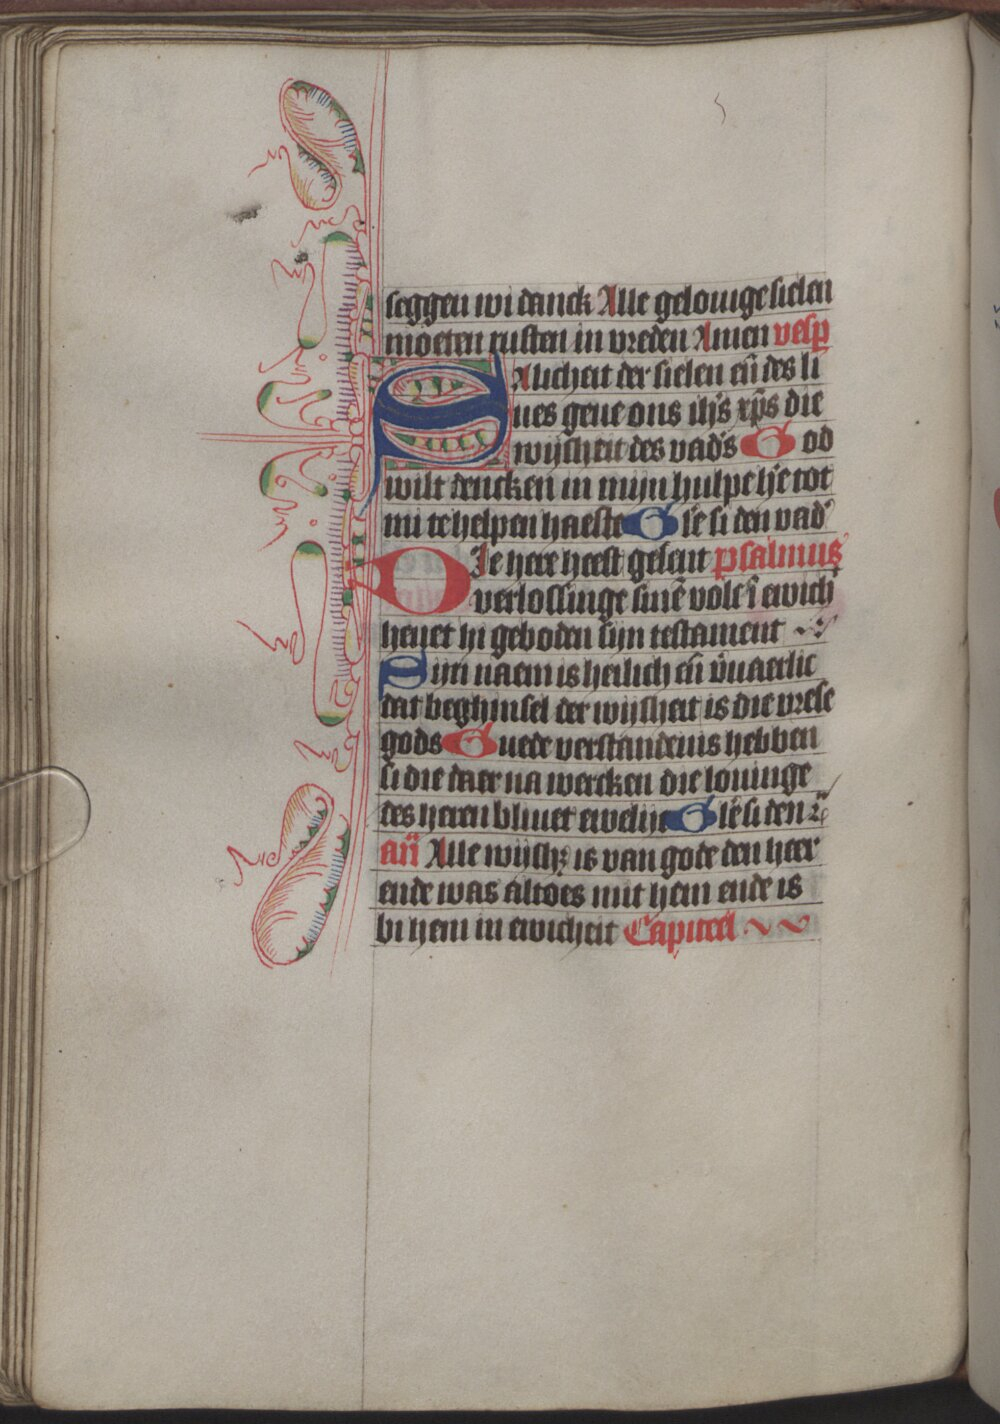 seggen wi danck Alle gelouige sielen
moeten rusten in vreden Amen vesp
SAlicheit der sielen eñ des li
ues geue ons ih̄s xp̄s die
wijsheit des vad's God
wilt dencken in mijn hulpe h̄e tot
mi te helpen haeste Gl̄e si den vad'
DIe here heeft gesent psalmus
verlossinge sinē volc ī ewich
heuet hi geboden sijn testament
Sijn naem is heilich eñ v̄uaerlic
dat beghinsel der wijsheit is die vrese
gods Guede verstandenis hebben
si die daer na wercken die louinge
des heren bliuet ewelijc Gl̄e si den
añ Alle wijsh; is van gode den heer
ende was altoes mit hem ende is
bi hem in ewicheit Capittel